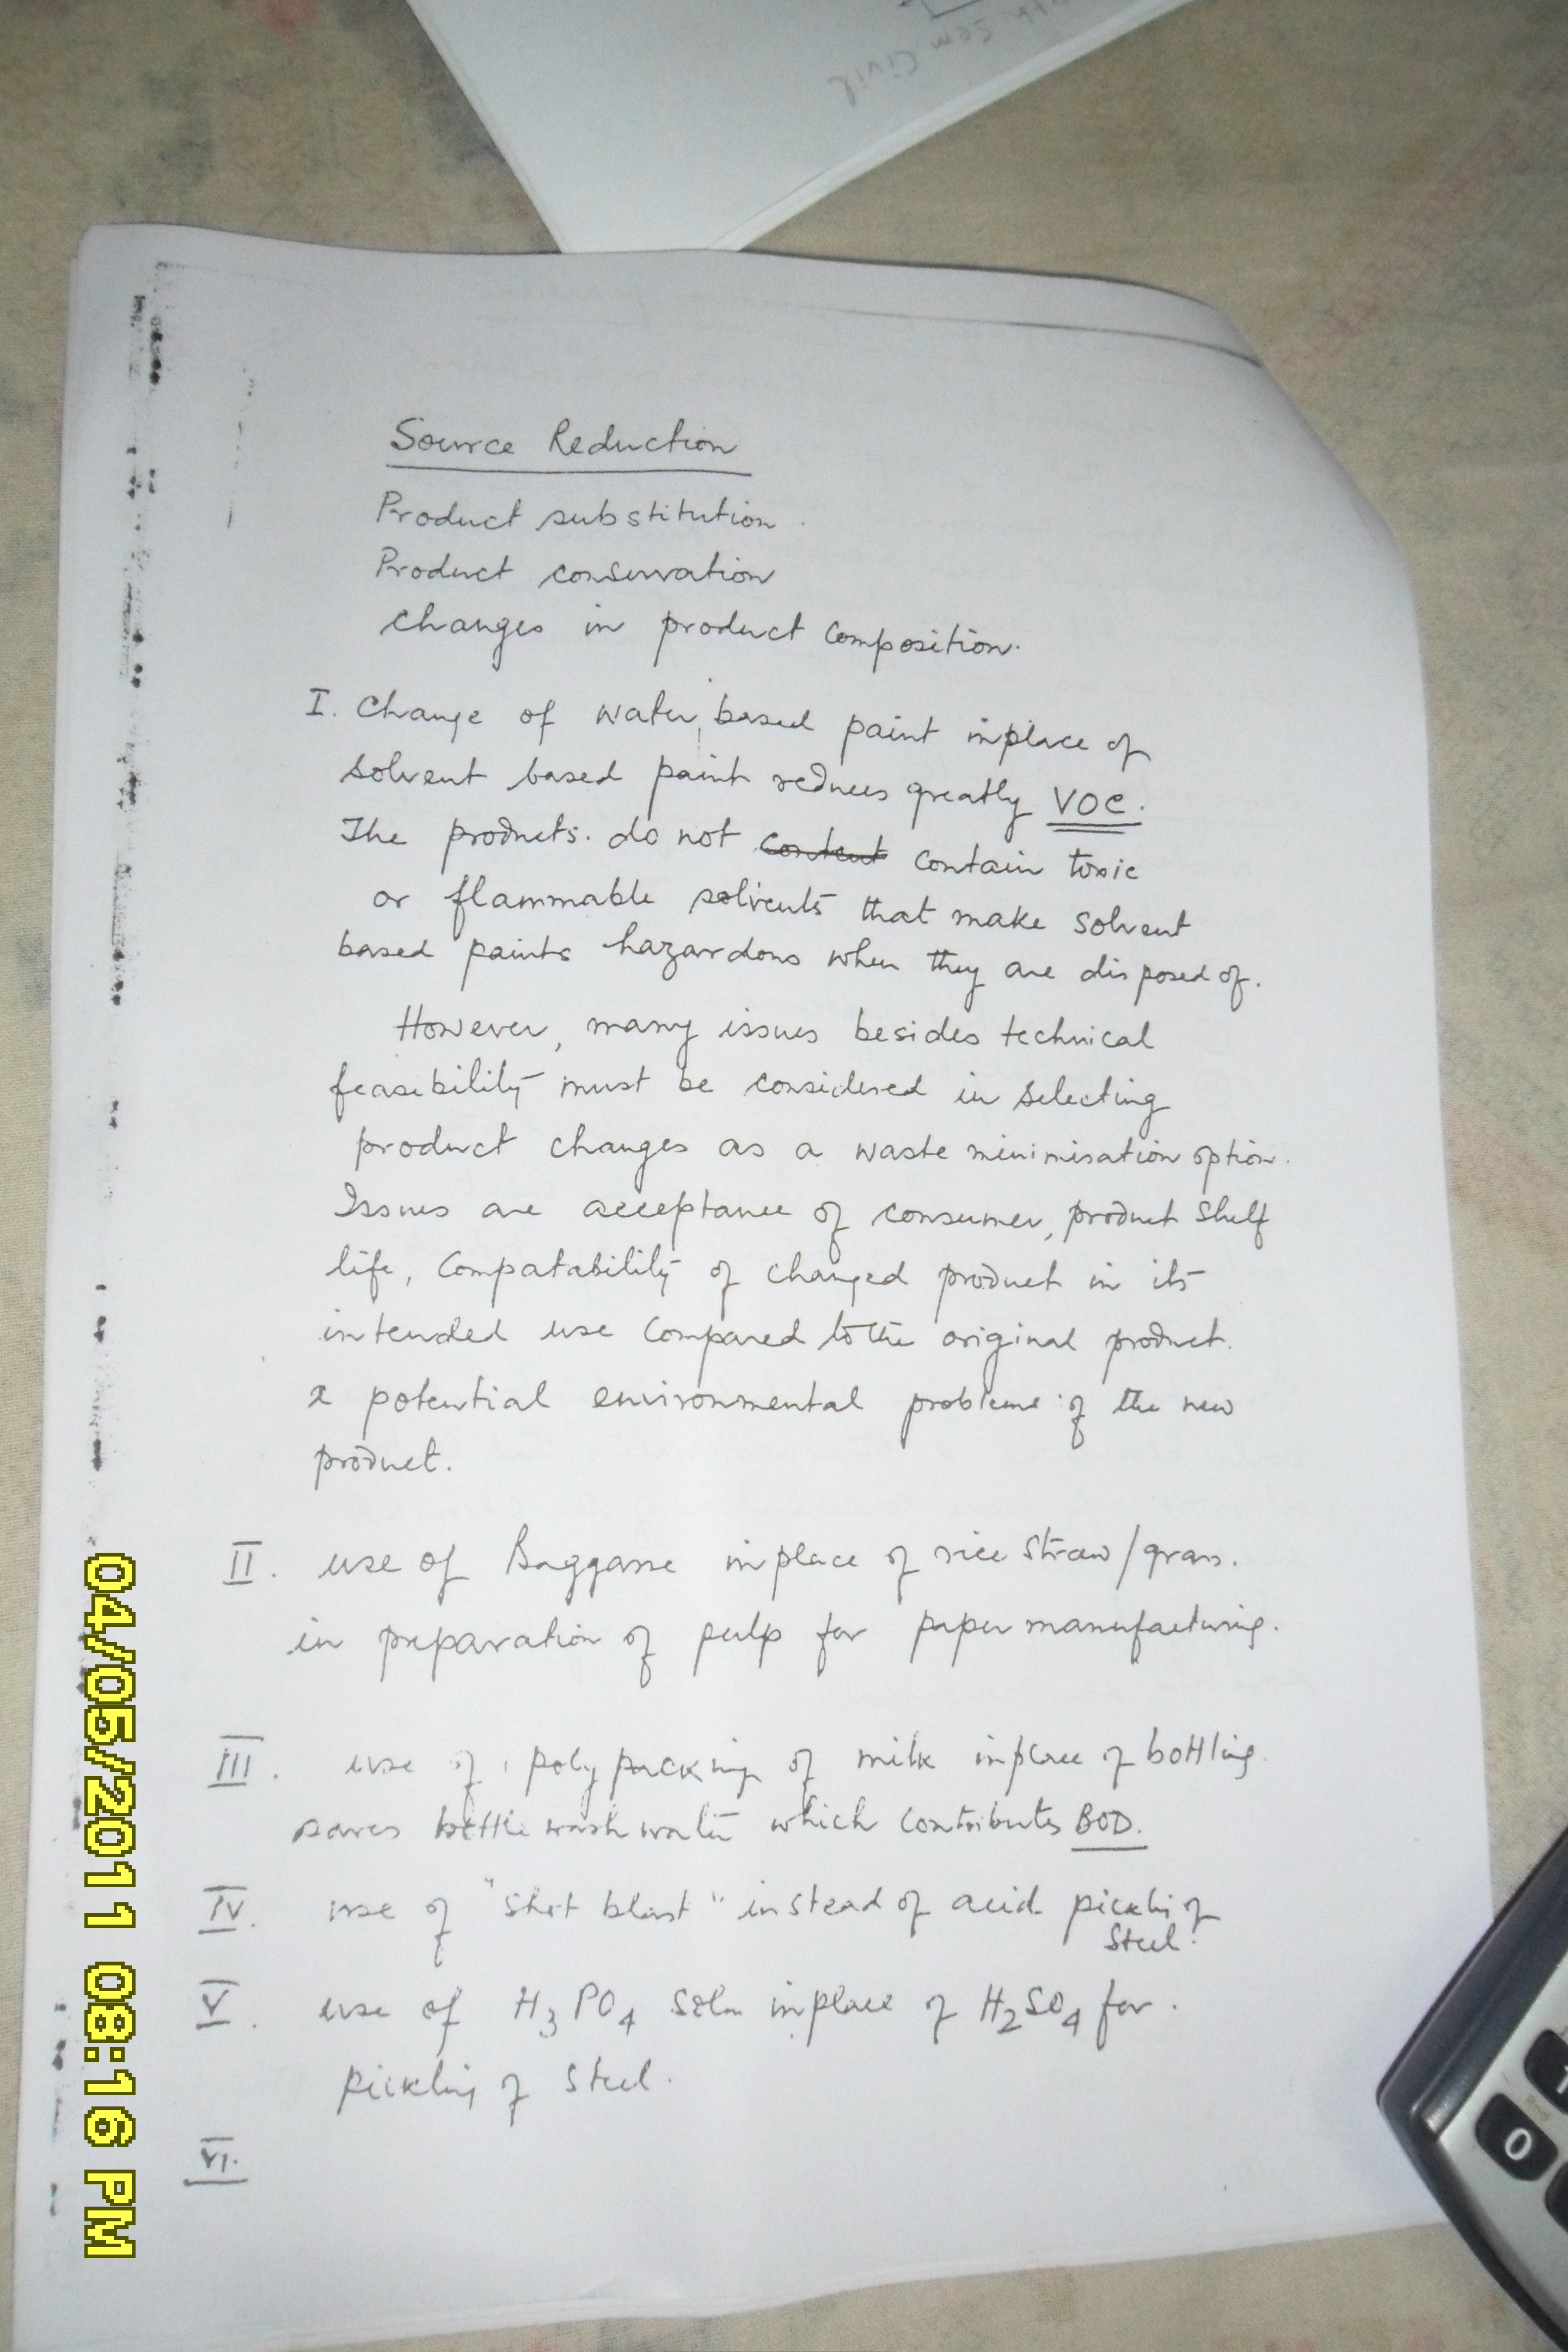 4th Sem Civil
Source Reduction
Product substitution.
Product conservation
changes in product composition.
I. Change of water, based paint inplace of
solvent based paint reduces greatly VOC.
The products. do not content contain toxic
or flammable solvents that make solvent
based paints hazardous when they are disposed of.
However, many issues besides technical
feasibility must be considered in selecting
product changes as a waste minimisation option.
Issues are acceptance of consumer, product shelf
life, Compatability of changed product in its
intended use compared to the original product.
& potential environmental problems of the new
product.
II. use of Baggasse inplace of rice straw/grass.
in preparation of pulp for paper manufacturing.
III. use of poly packing of milk inplace of bottling.
saves bottle wash water which contributes BOD.
IV. use of "shot blast" instead of acid pickli of
steel.
V. use of H₃PO₄ soln inplace of H₂SO₄ for.
pickling of steel.
VI.
04/05/2011 08:16 PM
0